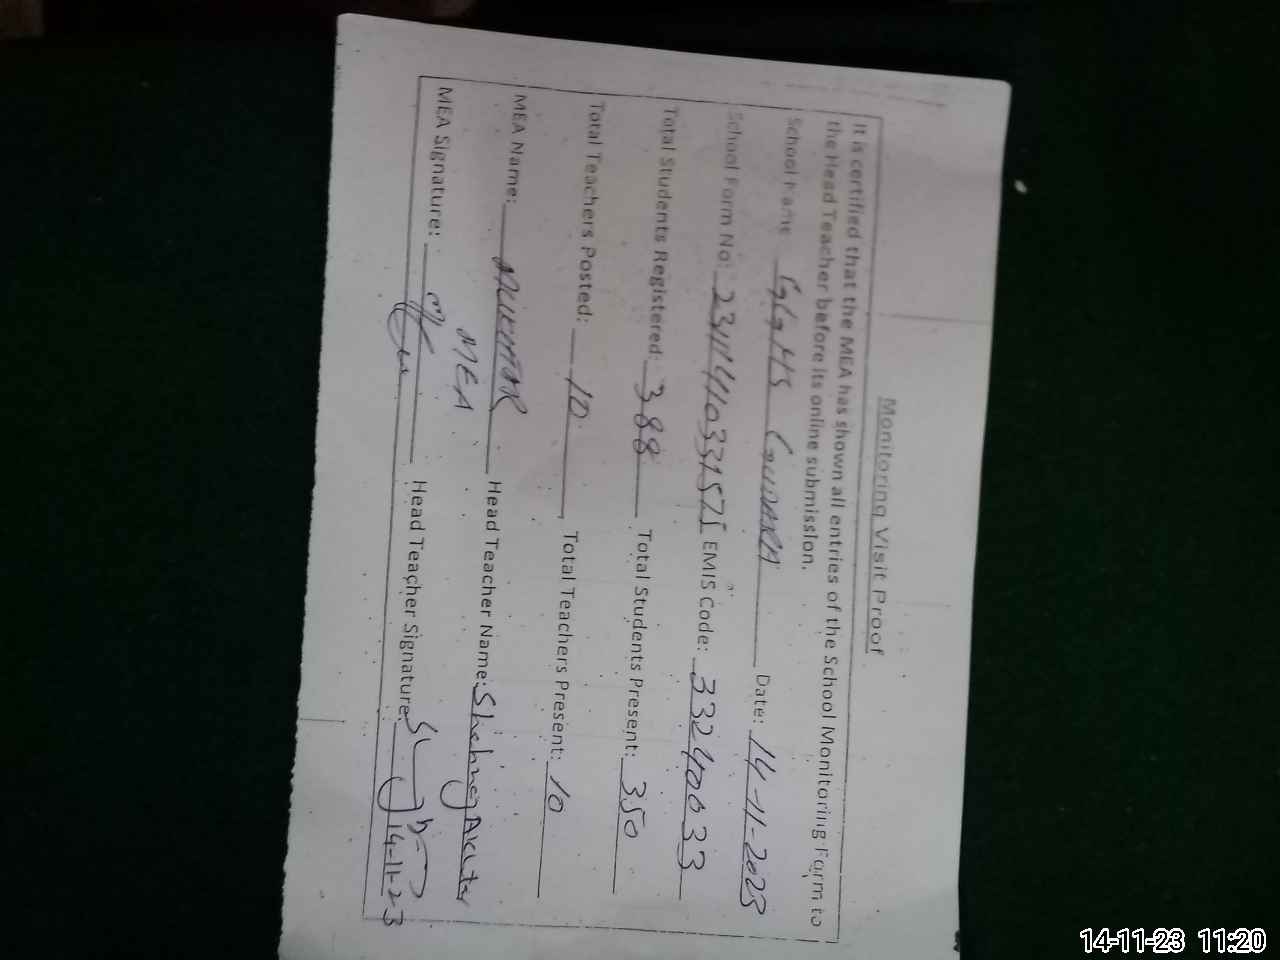 Monitoring Visit Proof
It is certified that the MEA has shown all entries of the School Monitoring Form to
the Head Teacher before its online submission.
School Name GGHS Date: 14-11-2023
School Form No: EMIS Code: 33240033
Total Students Registered: 388 Total Students Present: 350
Total Teachers Posted: 10 Total Teachers Present: 10
MEA Name: MUKHTAR Head Teacher Name: Shahnaz Akhter
MEA
MEA Signature: Head Teacher Signature:
14-11-23
14-11-23 11:20